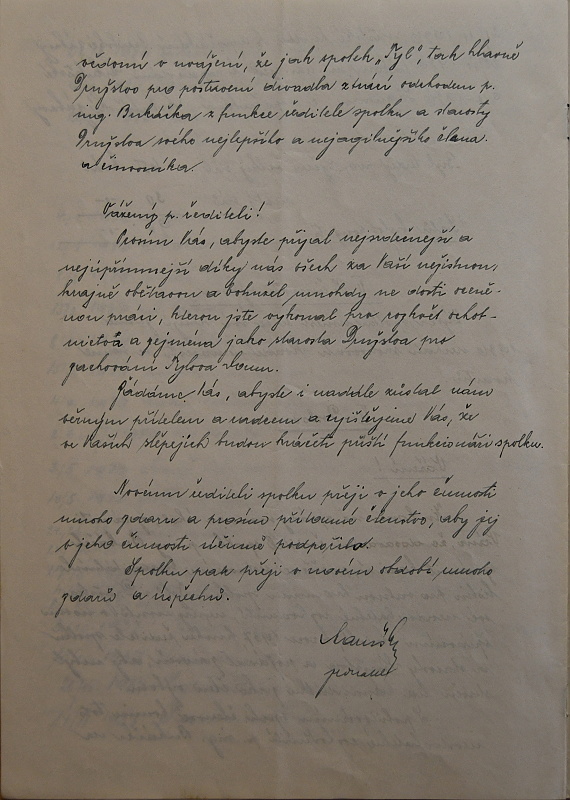 vědomi v uvážení, že jak spolek „Tyl“, tak hlavně
Družstvo pro postavení divadla ztrácí odchodem p.
ing. Bukáčka z funkce ředitele spolku a starosty
Družstva svého nejlepšího a nejagilnějšího člena
a činovníka.
Vážený p. řediteli!
Prosím Vás, abyste přijal nejsrdečnější a
nejupřímnější díky nás všech za Vaši nezištnou,
krajně obětavou a bohužel mnohdy ne dosti oceně-
nou práci, kterou jste vykonal pro rozkvět ochot-
nictva a zejména jako starosta Družstva pro
zachování Tylova domu.
Žádáme Vás, abyste i nadále zůstal nám
věrným přítelem a rádcem a zjišťujeme Vás, že
ve Vašich šlépějích budou kráčeti příští funkcionáři spolku.
Novému řediteli spolku přeji v jeho činnosti
mnoho zdaru a prosím přítomné členstvo, aby jej
v jeho činnosti účinně podpořilo.
Spolku pak přeji v novém období mnoho
zdarů a úspěchů.
jednatel